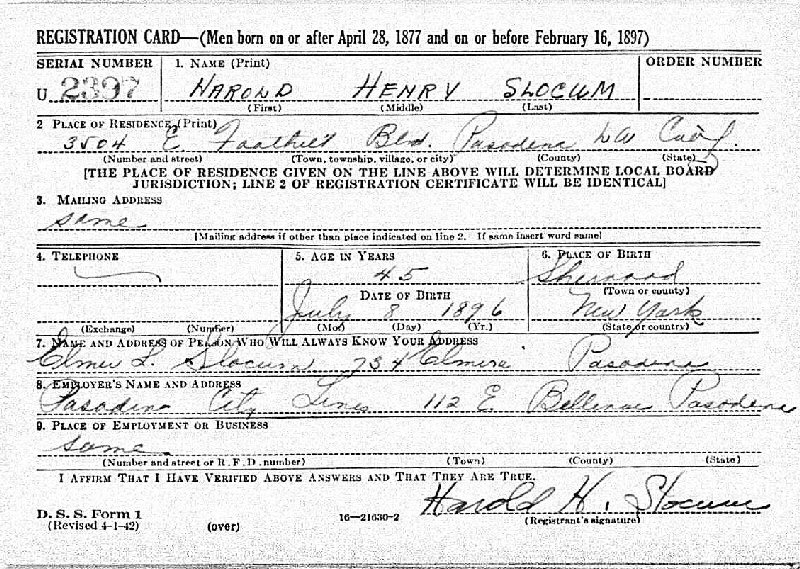 REGISTRATION CARD—(Men born on or after April 28, 1877 and on or before February 16, 1897)
SERIAL NUMBER 1. NAME (Print) ORDER NUMBER
U 2397 HAROLD HENRY SLOCUM
(First) (Middle) (Last)
2 PLACE OF RESIDENCE (Print)
3504 E Foothill Bld. Pasadena LA Calif.
(Number and street) (Town, township, village, or city) (County) (State)
[THE PLACE OF RESIDENCE GIVEN ON THE LINE ABOVE WILL DETERMINE LOCAL BOARD
JURISDICTION; LINE 2 OF REGISTRATION CERTIFICATE WILL BE IDENTICAL]
3. MAILING ADDRESS
same
[Mailing address if other than place indicated on line 2. If same insert word same]
4. TELEPHONE 5. AGE IN YEARS 6. PLACE OF BIRTH
45 Sherwood
DATE OF BIRTH (Town or county)
July 8 1896 New York
(Exchange) (Number) (Mo.) (Day) (Yr.) (State or country)
7. NAME AND ADDRESS OF PERSON WHO WILL ALWAYS KNOW YOUR ADDRESS
Elmer L. Slocum 734 Elmira Pasadena
8. EMPLOYER'S NAME AND ADDRESS
Pasadena City Lines 112 E. Bellevue Pasadena
9. PLACE OF EMPLOYMENT OR BUSINESS
same
(Number and street or R. F. D. number) (Town) (County) (State)
I AFFIRM THAT I HAVE VERIFIED ABOVE ANSWERS AND THAT THEY ARE TRUE.
Harold H. Slocum
D. S. S. Form 1
(Revised 4-1-42) (over) 16—21630-2 (Registrant's signature)